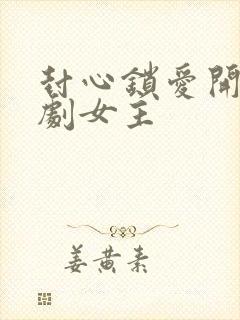 封心鎖愛開
劇女主
姜黃素